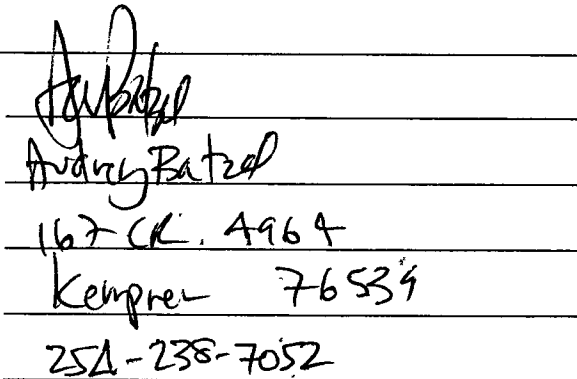 Audrey Batzel
167 CR. 4964
Kempner 76539
254-238-7052